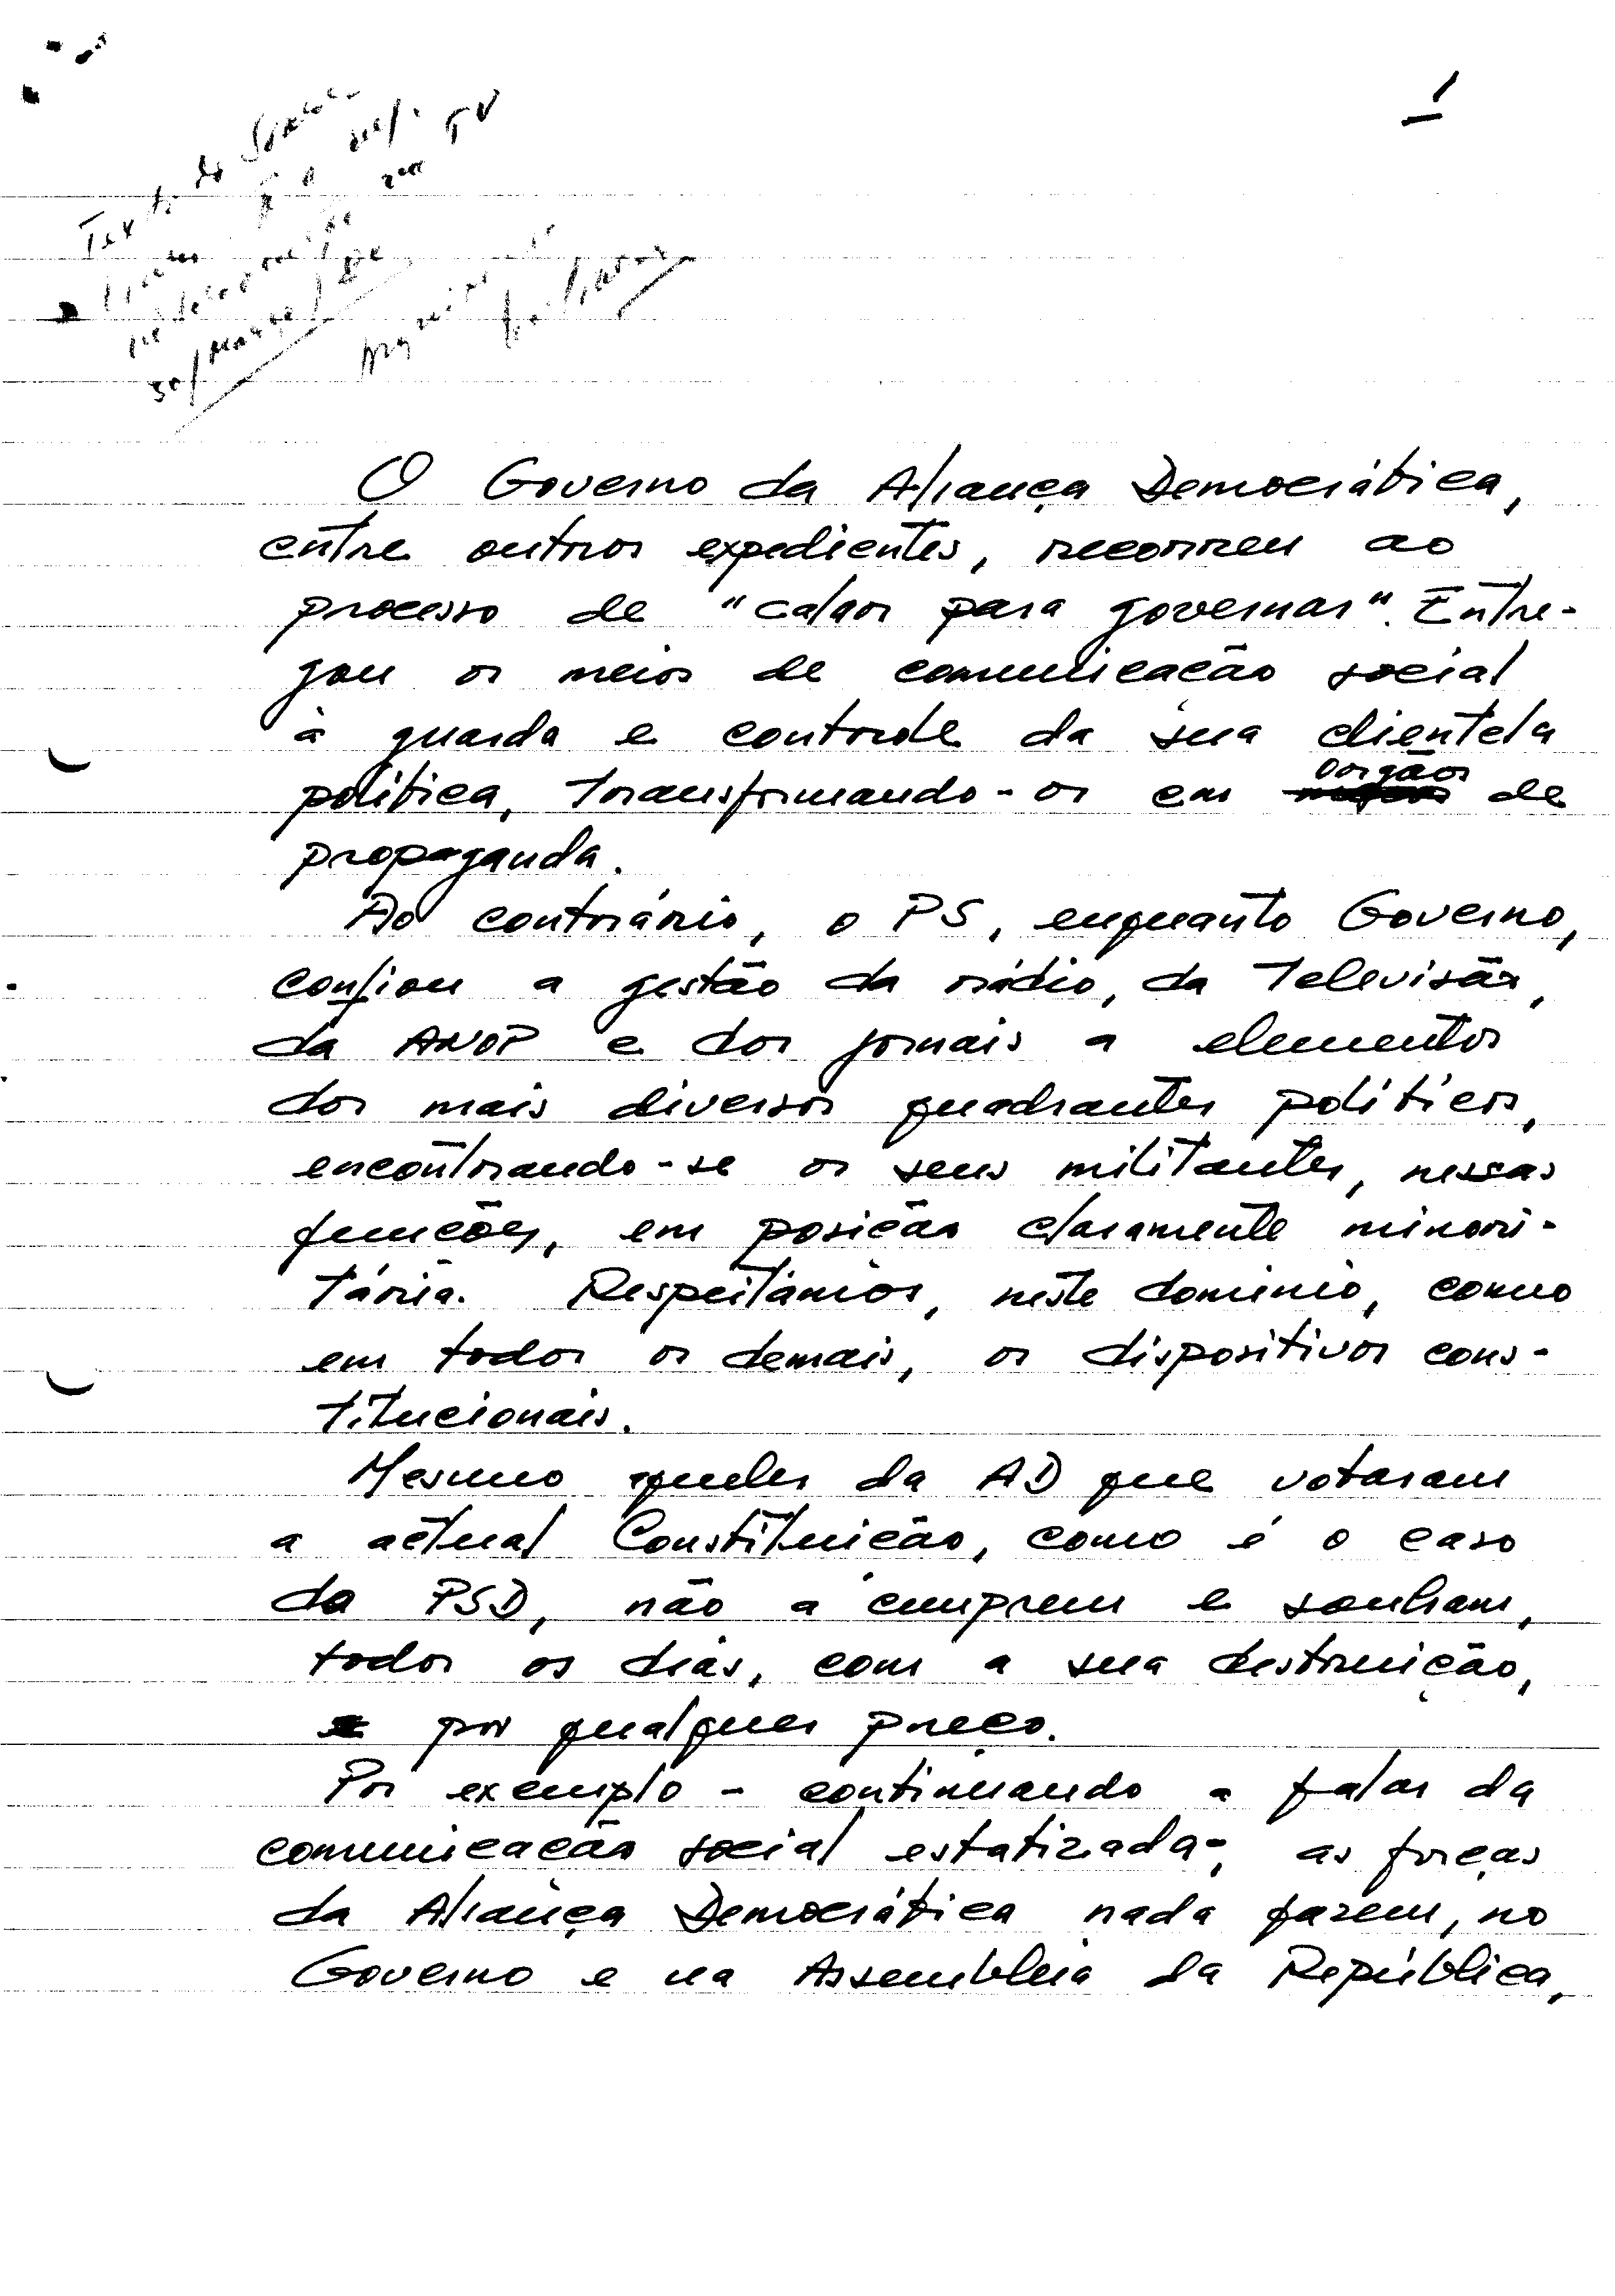 1
Texto do
TV
O Governo da Aliança Democrática,
entre outros expedientes, recorreu ao
processo de "calar para governar". Entre-
gou os meios de comunicação social
à guarda e controle da sua clientela
política, transformando-os em orgãos de
propaganda.
Ao contrário, o PS, enquanto Governo,
confiou a gestão da rádio, da Televisão,
da ANOP e dos jornais a elementos
dos mais diversos quadrantes políticos,
encontrando-se os seus militantes, nessas
funções, em posição claramente minori-
tária. Respeitámos, neste domínio, como
em todos os demais, os dispositivos cons-
titucionais.
Mesmo aqueles da AD que votaram
a actual Constituição, como é o caso
do PSD, não a cumprem e sonham,
todos os dias, com a sua destruição,
por qualquer preço.
Por exemplo - continuando a falar da
comunicação social estatizada -, as forças
da Aliança Democrática nada fazem, no
Governo e na Assembleia da República,